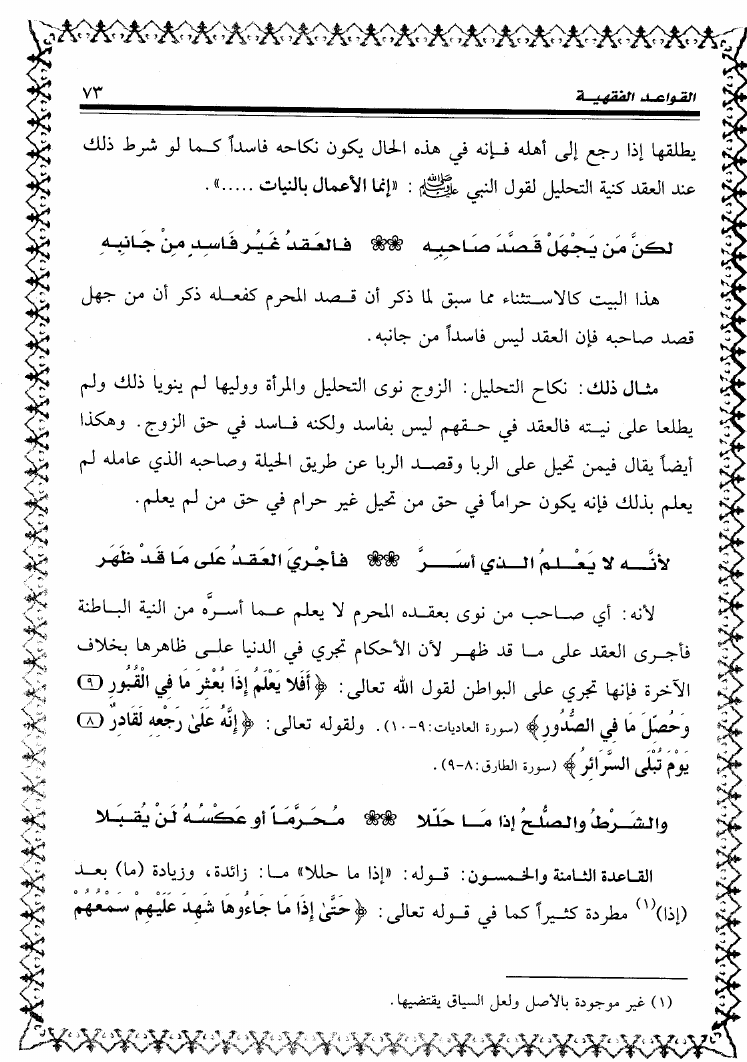 القواعد الفقهية
٧٣
يطلقها إذا رجع إلى أهله فـإنه في هذه الحال يكون نكاحه فاسداً كـما لو شرط ذلك
عند العقد كنية التحليل لقول النبي ﷺ : «إنما الأعمال بالنيات .....».
لكنَّ مَن يَجْهَلْ قَصْدَ صَاحِبِه ❀❀ فـالعَقدُ غَيْر فَاسِدٍ مِنْ جَانِبِهِ
هذا البيت كالاستثناء مما سبق لما ذكر أن قـصد المحرم كفعلـه ذكر أن من جهل
قصد صاحبه فإن العقد ليس فاسداً من جانبه.
مثـال ذلك: نكاح التحليل: الزوج نوى التحليل والمرأة ووليها لم ينويا ذلك ولم
يطلعا على نيـته فالعقد في حـقهم ليس بفاسد ولكنه فـاسد في حق الزوج. وهكذا
أيضاً يقال فيمن تحيل على الربا وقصـد الربا عن طريق الحيلة وصاحبه الذي عامله لم
يعلم بذلك فإنه يكون حراماً في حق من تحيل غير حرام في حق من لم يعلم.
لأنَّـــه لا يَعْـلـمُ الـــذي أسَـــرَّ ❀❀ فـأجْريَ العَقـدُ على مَا قَدْ ظَهَر
لأنه: أي صـاحب من نوى بعقـده المحرم لا يعلم عمـا أسرَّه من النية البـاطنة
فـأجـرى العقد على مـا قد ظهـر لأن الأحكام تجري في الدنيا علـى ظاهرها بخلاف
الآخرة فإنها تجري على البواطن لقول الله تعالى: ﴿ أَفَلا يَعْلَمُ إِذَا بُعْثِرَ مَا فِي الْقُبُورِ ٩
وَحُصِّلَ مَا فِي الصُّدُورِ﴾ (سورة العاديات:٩-١٠). ولقوله تعالى: ﴿ إِنَّهُ عَلَىٰ رَجْعِهِ لَقَادِرٌ ٨
يَوْمَ تُبْلَى السَّرَائِرُ﴾ (سورة الطارق:٨-٩).
والشَـرْطُ والصلْحُ إذا مَـا حَللا ❀❀ مُحَـرَّمَـاً أو عَكْسُهُ لَنْ يُقـبَلا
القاعدة الثامنة والخمسـون: قـوله: «إذا ما حللا» مـا: زائدة، وزيادة (ما) بعـد
(إذا)(١) مطردة كثيـراً كما في قـوله تعالى: ﴿ حَتَّىٰ إِذَا مَا جَاءُوهَا شَهِدَ عَلَيْهِمْ سَمْعُهُمْ
(١) غير موجودة بالأصل ولعل السياق يقتضيها.